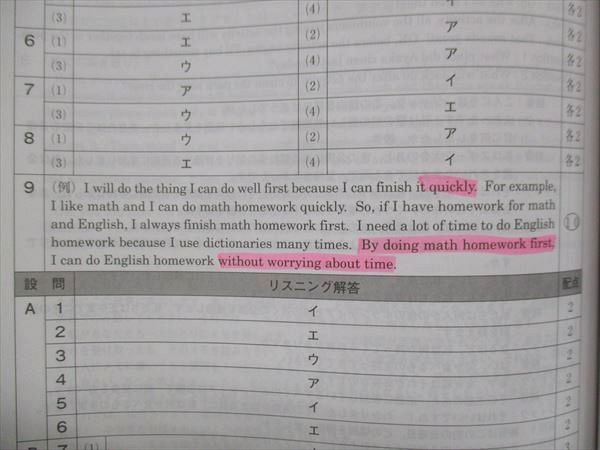 (3) エ (4) イ 各2
6 (1) エ (2) ア
(3) ウ (4) ア 各2
7 (1) ア (2) イ 各2
(3) ウ (4) エ 各2
8 (1) ウ (2) ア 各2
(3) エ (4) イ 各2
9 (例) I will do the thing I can do well first because I can finish it quickly. For example,
I like math and I can do math homework quickly. So, if I have homework for math
and English, I always finish math homework first. I need a lot of time to do English
homework because I use dictionaries many times. By doing math homework first,
I can do English homework without worrying about time.
設 問 リスニング解答 配点
A 1 イ 2
2 エ 2
3 ウ 2
4 ア 2
5 イ 2
6 エ 2
(1)